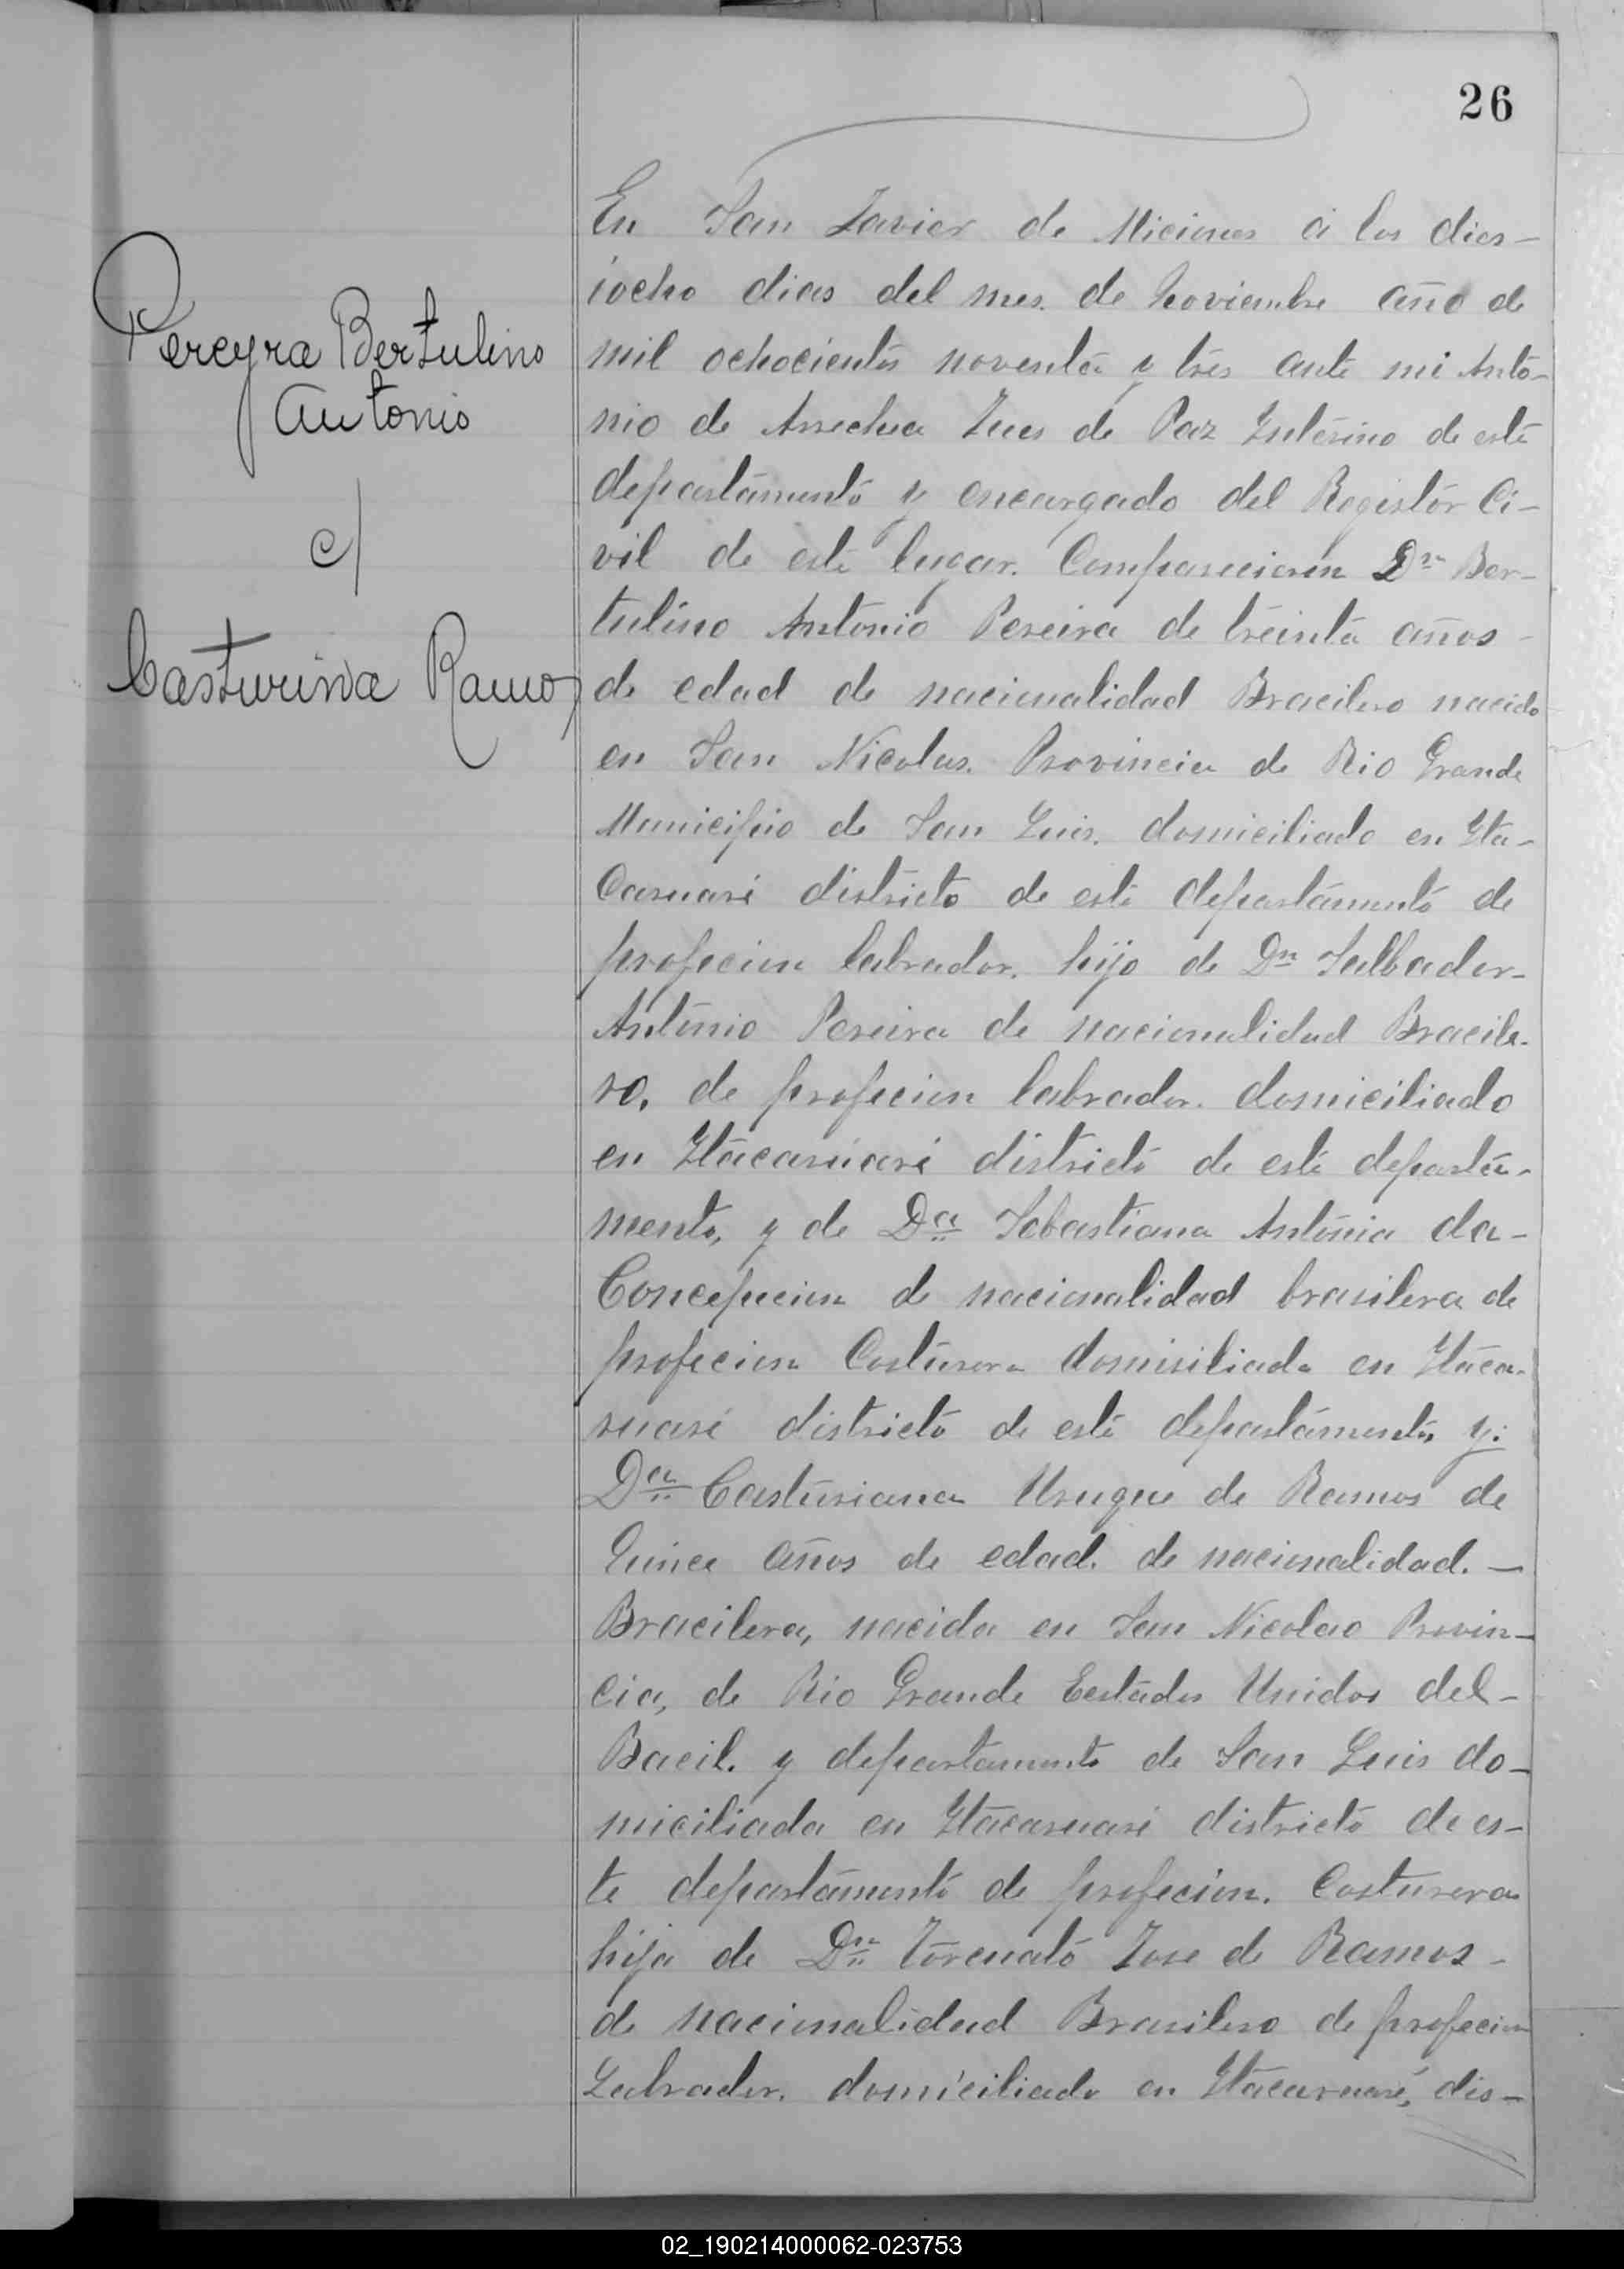 26
Pereyra Bertulino
Antonio
c/
Casturina Ramos
En San Javier de Miciones á los dies-
iocho dias del mes. de Noviembre año de
mil ochocientos noventa y tres ante mi Anto-
nio de Arrechea Jues de Paz Interino de este
departamento y encargado del Registor Ci-
vil de este lugar. Comparecieron Dn Ber-
tulino Antonio Pereira de treinta años -
de edad de nacionalidad Bracilero nacido
en San Nicolas. Provincia de Rio Grande
Municipio de San Luis. domiciliado en Ita-
Caruaré districto de este departamento de
profecion labrador. hijo de Dn Salbador-
Antonio Pereira de nacionalidad Bracile-
ro, de profecion labrador. domiciliado
en Itacaruaré districto de este departa-
mento, y de Da Sebastiana Antonia da-
Concepcion de nacionalidad brasilera de
profecion Costurera domisiliada en Itaca-
ruaré districto de este departamento, y:
Da Casturiana de Ramos de
quince años de edad. de nacionalidad. —
Bracilera, nacida en San Nicolao Provin-
cia, de Rio Grande Eestados Unidos del-
Bacil. y departamento de San Luis do-
miciliada en Itacaruaré districto de es-
te departamento de profecion. Costurera
hija de Dn Torcuato Jose de Ramos -
de nacionalidad Brasilero de profecion
Labrador. domiciliado en Itacaruaré, dis-
02_190214000062-023753